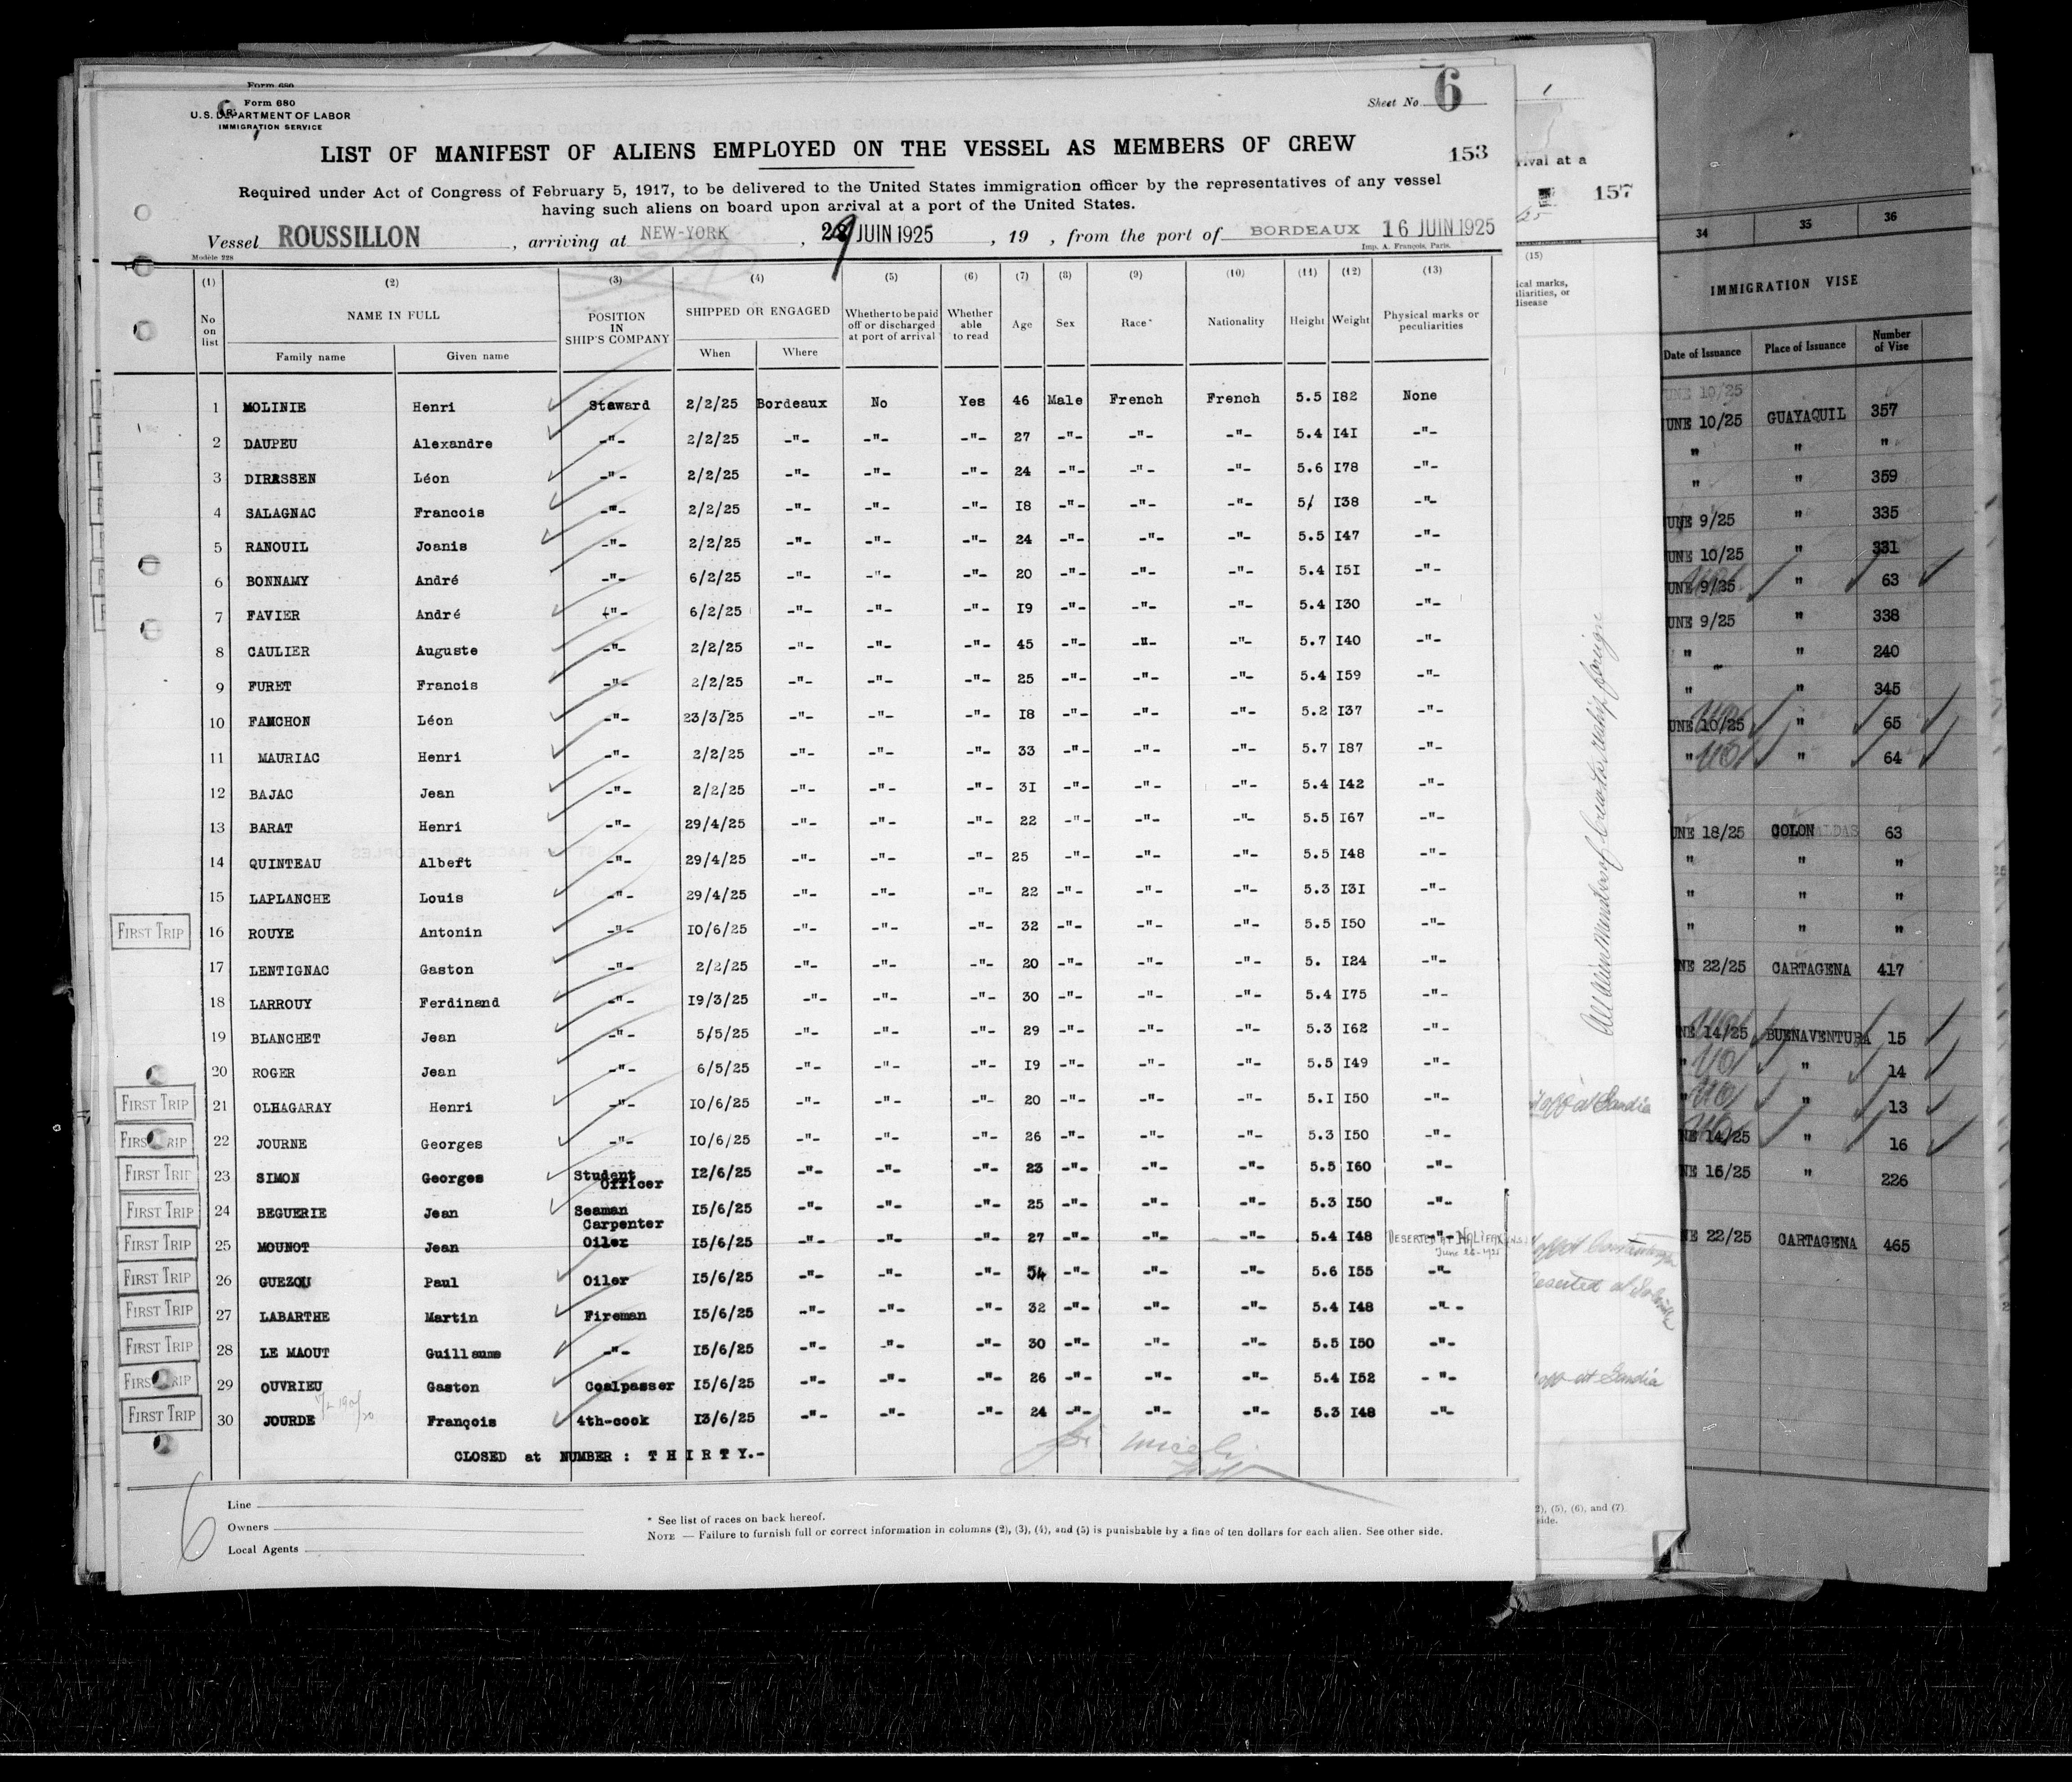 Form 680
Form 680
U.S. DEPARTMENT OF LABOR
IMMIGRATION SERVICE
Sheet No 6
LIST OF MANIFEST OF ALIENS EMPLOYED ON THE VESSEL AS MEMBERS OF CREW
153
Required under Act of Congress of February 5, 1917, to be delivered to the United States immigration officer by the representatives of any vessel
having such aliens on board upon arrival at a port of the United States.
Vessel ROUSSILLON , arriving at NEW-YORK , 29 JUIN 1925 , 19 , from the port of BORDEAUX 16 JUIN 1925
Modèle 228
Imp. A. François, Paris.
(1) (2) (3) (4) (5) (6) (7) (8) (9) (10) (11) (12) (13)
No on list NAME IN FULL POSITION IN SHIP'S COMPANY SHIPPED OR ENGAGED Whether to be paid off or discharged at port of arrival Whether able to read Age Sex Race* Nationality Height Weight Physical marks or peculiarities
Family name Given name When Where
1 MOLINIE Henri Steward 2/2/25 Bordeaux No Yes 46 Male French French 5.5 I82 None
2 DAUPEU Alexandre -"- 2/2/25 -"- -"- -"- 27 -"- -"- -"- 5.4 I4I -"-
3 DIRASSEN Léon -"- 2/2/25 -"- -"- -"- 24 -"- -"- -"- 5.6 I78 -"-
4 SALAGNAC Francois -"- 2/2/25 -"- -"- -"- I8 -"- -"- -"- 5/ I38 -"-
5 RANOUIL Joanis -"- 2/2/25 -"- -"- -"- 24 -"- -"- -"- 5.5 I47 -"-
6 BONNAMY André -"- 6/2/25 -"- -"- -"- 20 -"- -"- -"- 5.4 I5I -"-
7 FAVIER André -"- 6/2/25 -"- -"- -"- I9 -"- -"- -"- 5.4 I30 -"-
8 CAULIER Auguste -"- 2/2/25 -"- -"- -"- 45 -"- -"- -"- 5.7 I40 -"-
9 FURET Francis -"- 2/2/25 -"- -"- -"- 25 -"- -"- -"- 5.4 I59 -"-
10 FANCHON Léon -"- 23/3/25 -"- -"- -"- I8 -"- -"- -"- 5.2 I37 -"-
11 MAURIAC Henri -"- 2/2/25 -"- -"- -"- 33 -"- -"- -"- 5.7 I87 -"-
12 BAJAC Jean -"- 2/2/25 -"- -"- -"- 3I -"- -"- -"- 5.4 I42 -"-
13 BARAT Henri -"- 29/4/25 -"- -"- -"- 22 -"- -"- -"- 5.5 I67 -"-
14 QUINTEAU Albeft -"- 29/4/25 -"- -"- -"- 25 -"- -"- -"- 5.5 I48 -"-
15 LAPLANCHE Louis -"- 29/4/25 -"- -"- -"- 22 -"- -"- -"- 5.3 I3I -"-
FIRST TRIP 16 ROUYE Antonin -"- I0/6/25 -"- -"- -"- 32 -"- -"- -"- 5.5 I50 -"-
17 LENTIGNAC Gaston -"- 2/2/25 -"- -"- -"- 20 -"- -"- -"- 5. I24 -"-
18 LARROUY Ferdinand -"- I9/3/25 -"- -"- -"- 30 -"- -"- -"- 5.4 I75 -"-
19 BLANCHET Jean -"- 5/5/25 -"- -"- -"- 29 -"- -"- -"- 5.3 I62 -"-
20 ROGER Jean -"- 6/5/25 -"- -"- -"- I9 -"- -"- -"- 5.5 I49 -"-
FIRST TRIP 21 OLHAGARAY Henri -"- I0/6/25 -"- -"- -"- 20 -"- -"- -"- 5.I I50 -"-
FIRST TRIP 22 JOURNE Georges -"- I0/6/25 -"- -"- -"- 26 -"- -"- -"- 5.3 I50 -"-
FIRST TRIP 23 SIMON Georges Student Officer I2/6/25 -"- -"- -"- 23 -"- -"- -"- 5.5 I60 -"-
FIRST TRIP 24 BEGUERIE Jean Seaman Carpenter I5/6/25 -"- -"- -"- 25 -"- -"- -"- 5.3 I50 -"-
FIRST TRIP 25 MOUNOT Jean Oiler I5/6/25 -"- -"- -"- 27 -"- -"- -"- 5.4 I48 -"- DESERTED AT HALIFAX N.S. June 26-1925
FIRST TRIP 26 GUEZOU Paul Oiler I5/6/25 -"- -"- -"- 54 -"- -"- -"- 5.6 I55 -"-
FIRST TRIP 27 LABARTHE Martin Fireman I5/6/25 -"- -"- -"- 32 -"- -"- -"- 5.4 I48 -"-
FIRST TRIP 28 LE MAOUT Guillaume -"- I5/6/25 -"- -"- -"- 30 -"- -"- -"- 5.5 I50 -"-
FIRST TRIP 29 OUVRIEU Gaston Coalpasser I5/6/25 -"- -"- -"- 26 -"- -"- -"- 5.4 I52 -"-
FIRST TRIP 30 JOURDE François 4th-cook I3/6/25 -"- -"- -"- 24 -"- -"- -"- 5.3 I48 -"-
CLOSED at NUMBER : T H I R T Y.-
6
Line
Owners
Local Agents
* See list of races on back hereof.
NOTE — Failure to furnish full or correct information in columns (2), (3), (4), and (5) is punishable by a fine of ten dollars for each alien. See other side.
rival at a
157
(15)
ical marks,
iliarities, or
disease
All alien members of crew to reship foreign
off at Sandia
off at Sandia
2), (5), (6), and (7)
side.
34 35 36
IMMIGRATION VISE
Date of Issuance Place of Issuance Number of Vise
UNE 10/25
UNE 10/25 GUAYAQUIL 357
" " "
" " 359
UNE 9/25 " 335
UNE 10/25 " 331
UNE 9/25 " 63
UNE 9/25 " 338
" " 240
" " 345
UNE 10/25 " 65
" " 64
UNE 18/25 COLON 63
" " "
" " "
" " "
NE 22/25 CARTAGENA 417
NE 14/25 BUENAVENTURA 15
" " 14
" " 13
NE 14/25 " 16
NE 15/25 " 226
NE 22/25 CARTAGENA 465